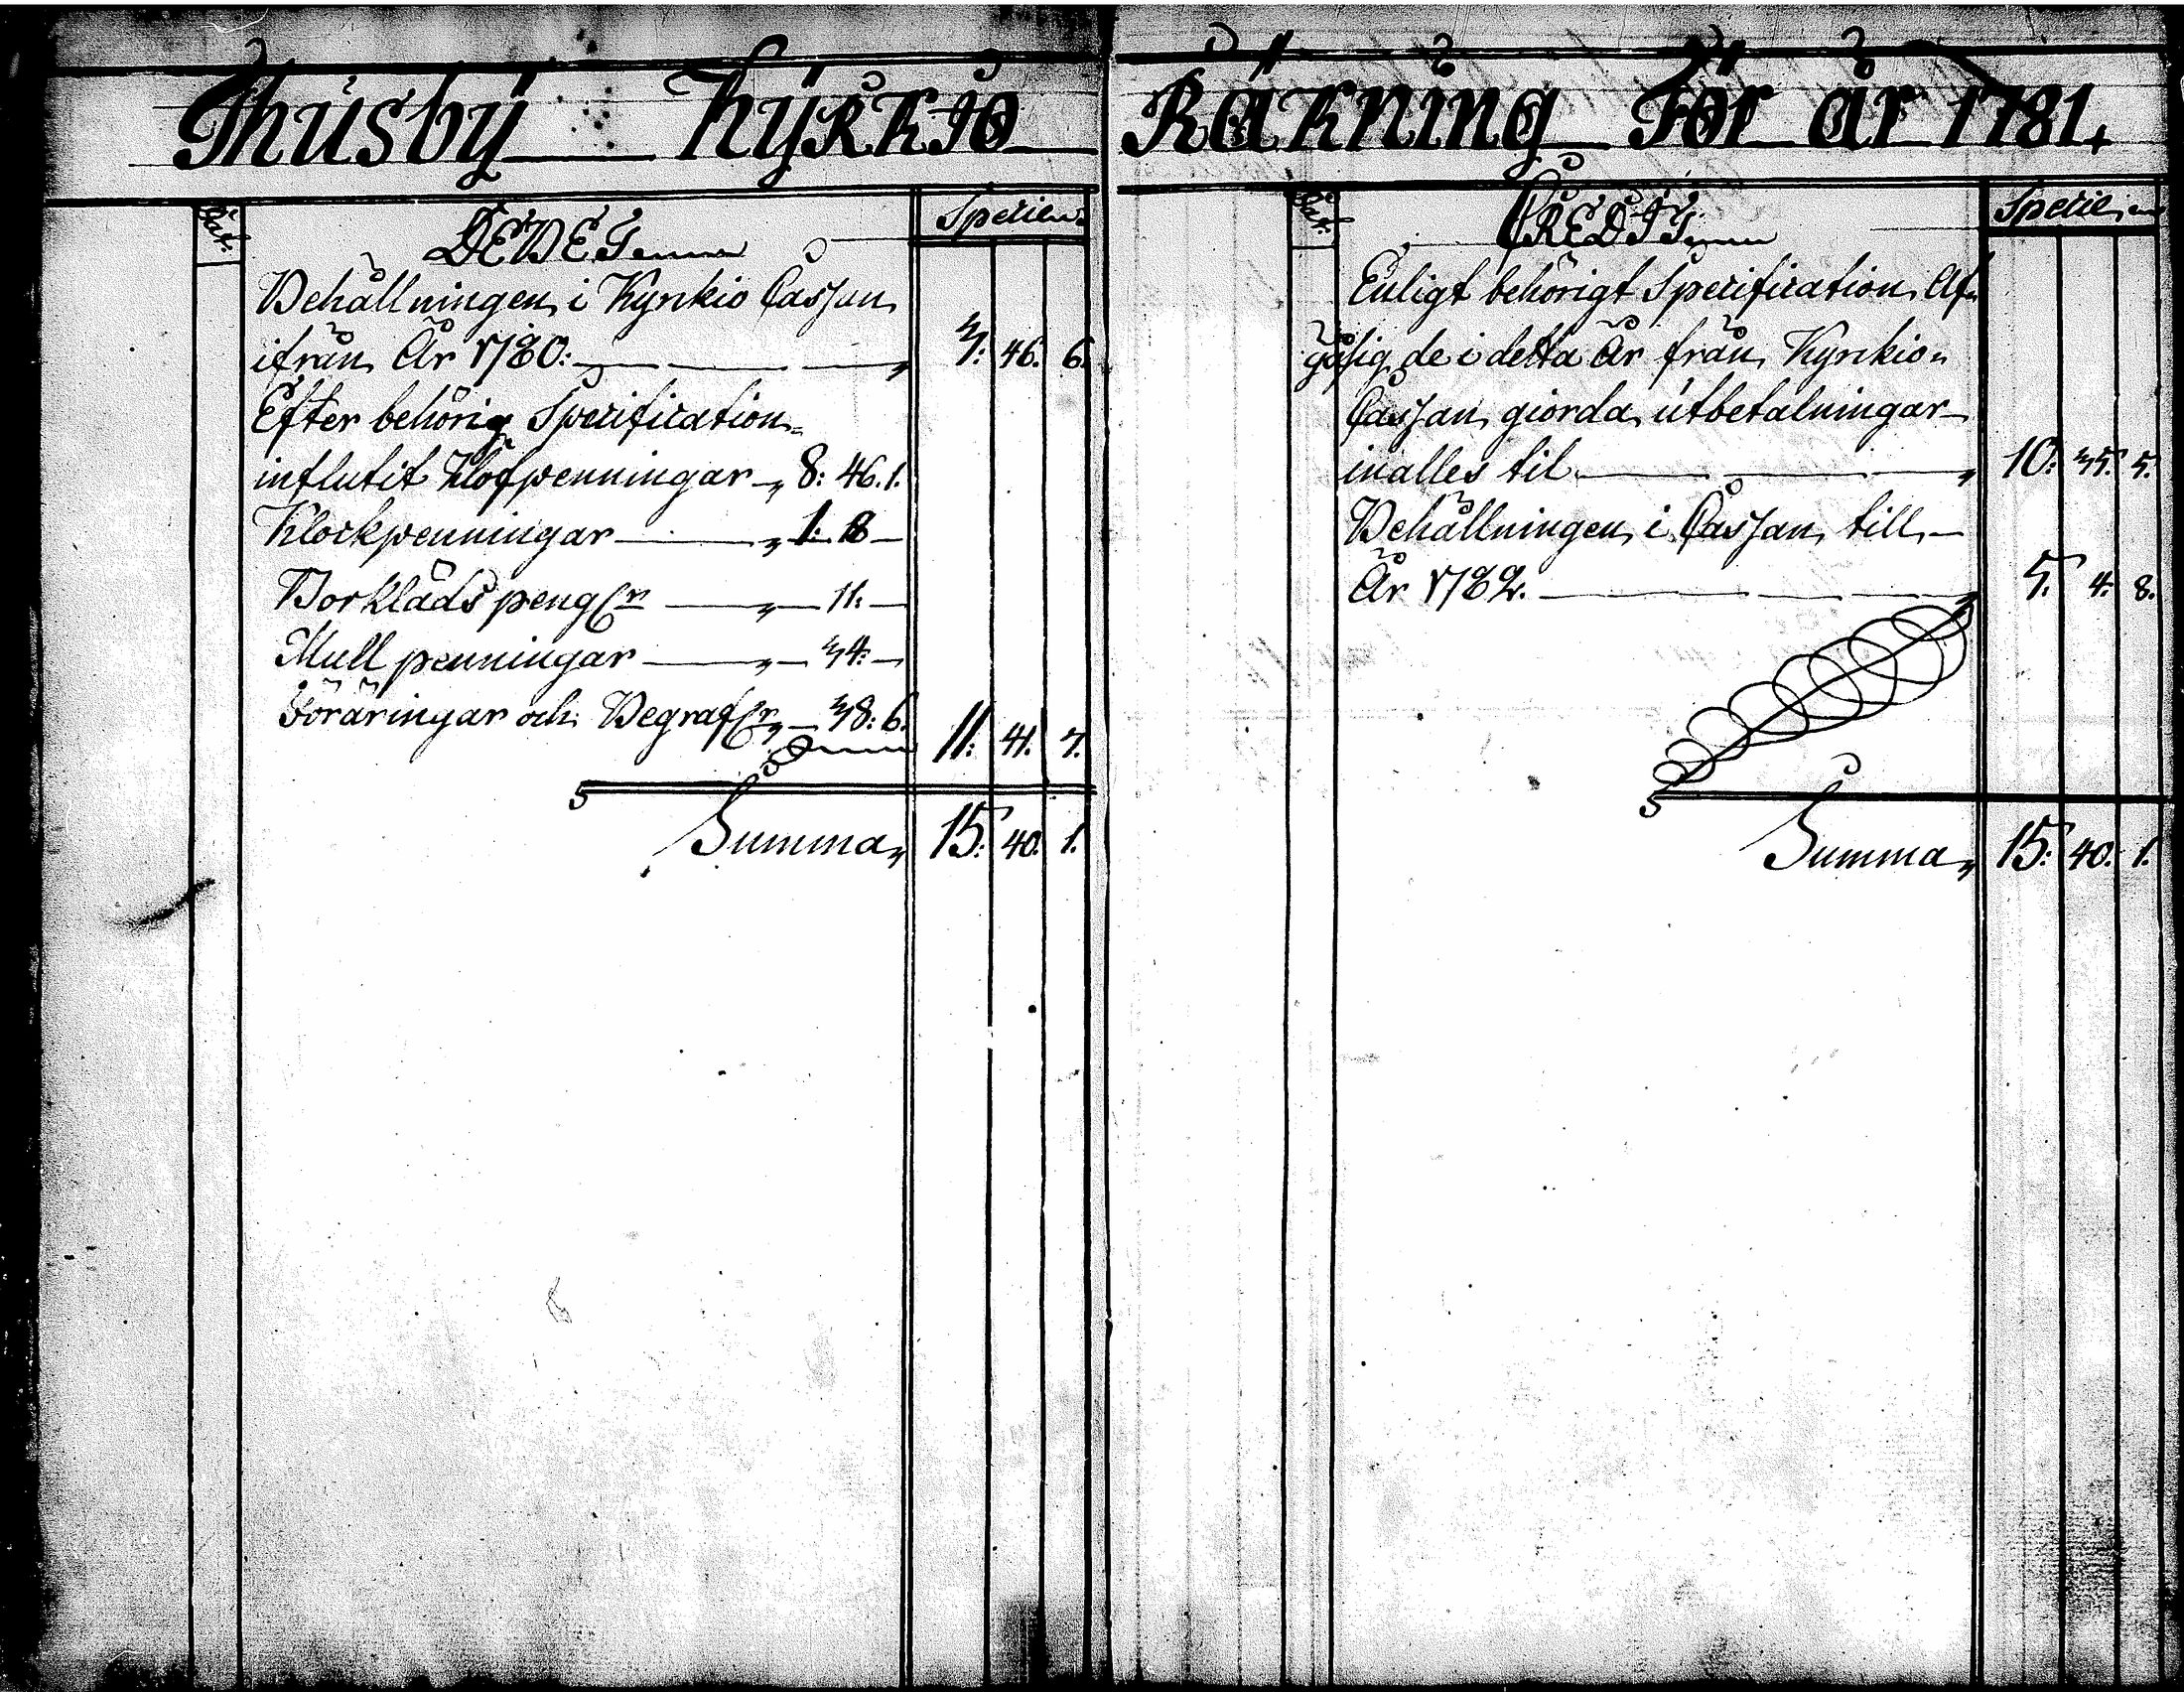 Thusby Kyrkio Räkning För år 1781.
Dat:
DEBET
Specie
Behållningen i Kyrkio Cassan
ifrån År 1780: 3: 46. 6.
Efter behörig Specification
influtit Håfpenningar 8: 46. 1.
Klockpenningar 1: 8
Borklädspeng:r 11:
Mull penningar 34:
Föräringar och Begraf:r 38: 6. 11: 41. 7.
Summa 15: 40. 1.
Dat:
CREDIT
Specie
Enligt behörigt Specification Af
gåsig de i detta År från Kyrkio
Cassan giorda utbetalningar
inalles til 10: 35. 5.
Behållningen i Cassan till
År 1782. 5. 4. 8.
Summa 15: 40. 1.